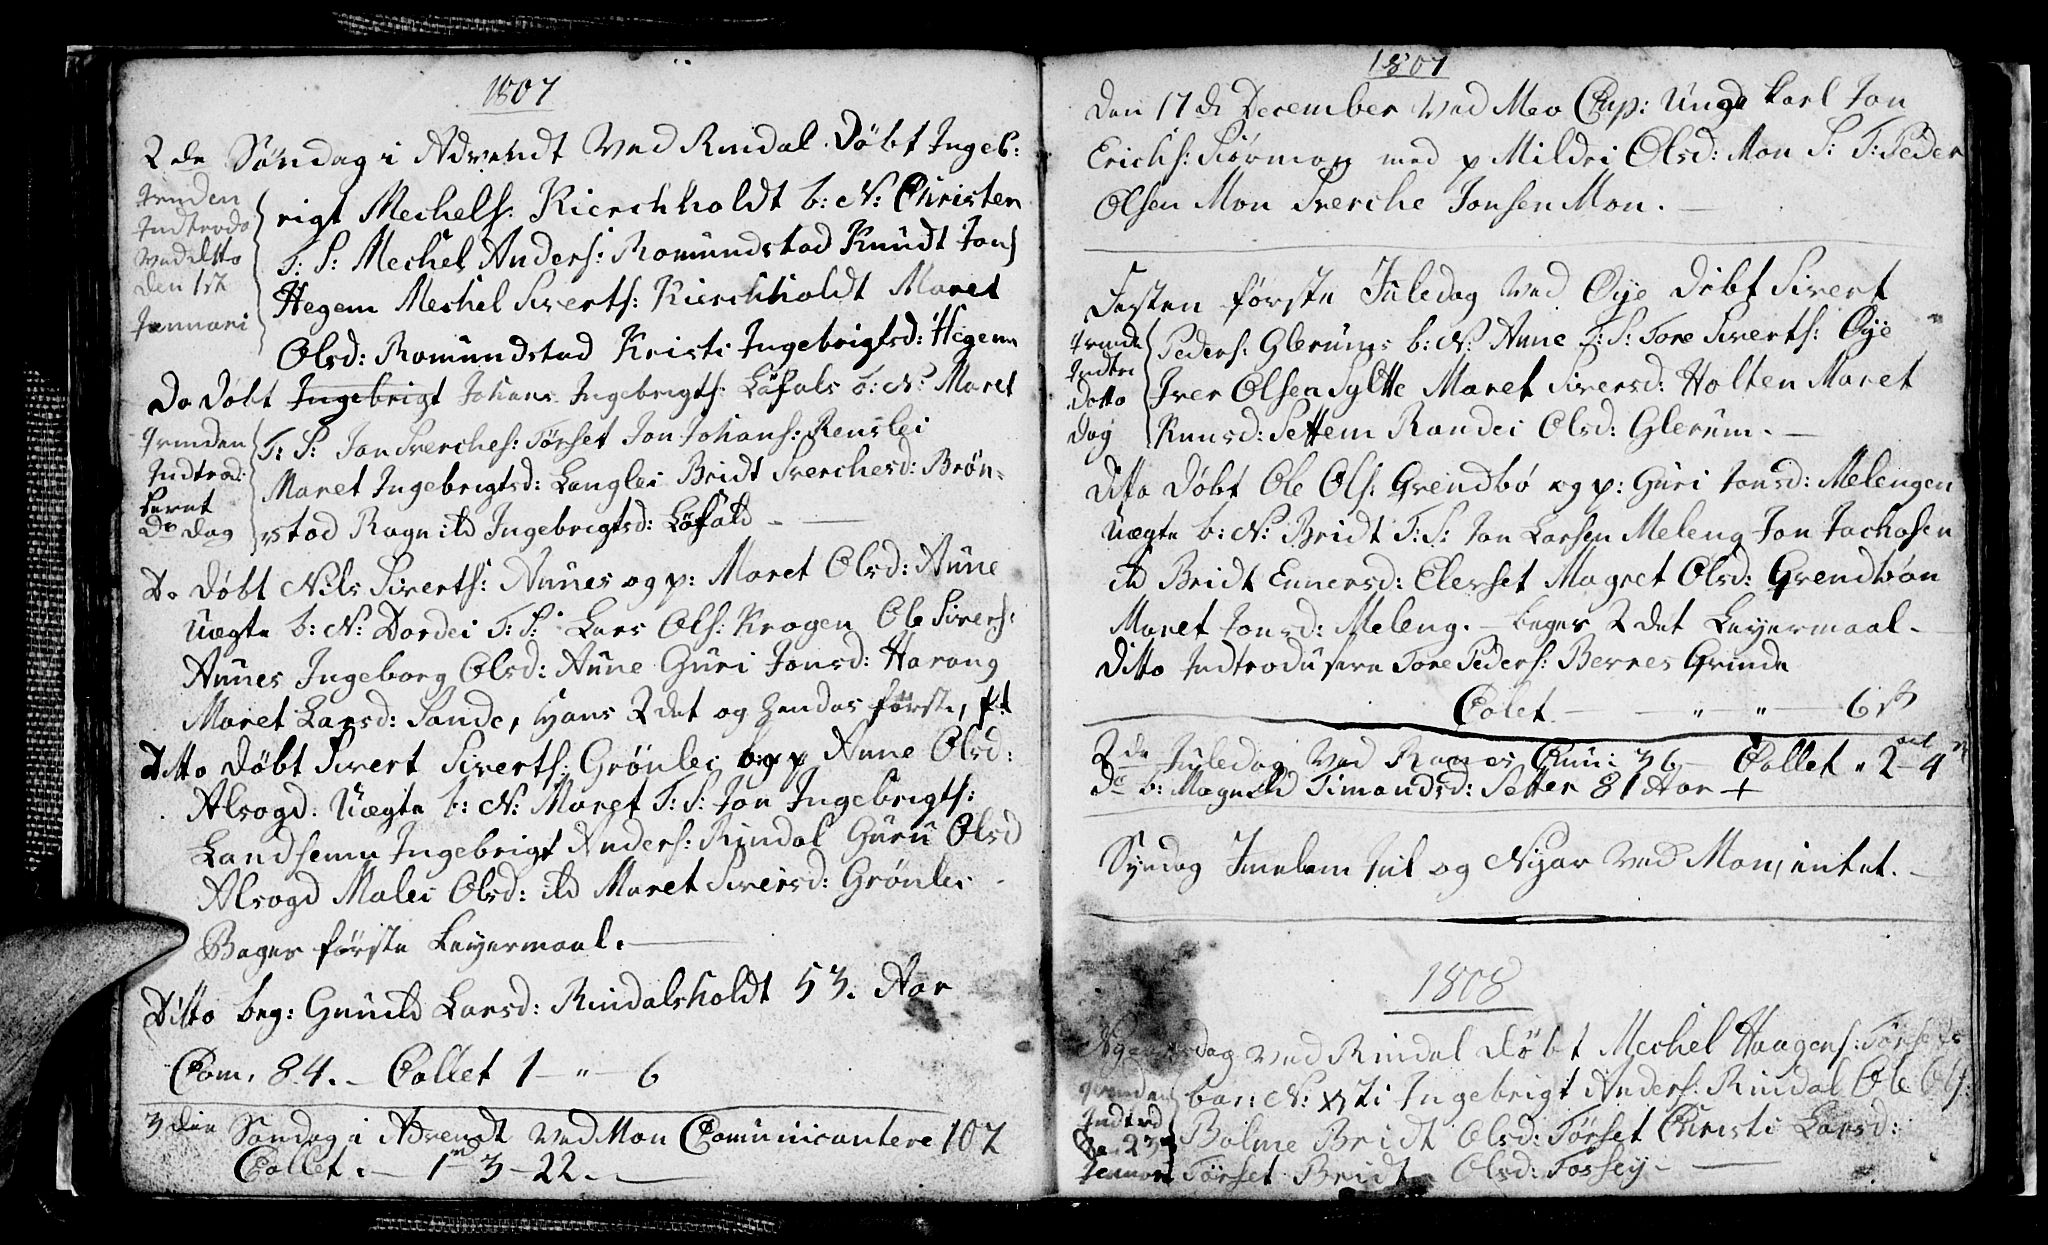 1807
2de Søndag i Advendt Ved Rindal Døbt Ingeb:
rigt Mechels: Kierchholdt b: N: Christen
T: S: Mechel Anders: Romundstad Knudt Jons
Hegem Mechel Siverts: Kierchholdt Maret
Olsd: Romundstad Kristi Ingebrigtsd: Hegem
Qvinden
Indtrodo
Ved ditto
den 1st
Jannuari
Do Døbt Ingebrigt Johans Ingebrigts: Løfals b: N: Maret
T: S: Jon Sverches: Tørset Jon Johans: Renslei
Maret Ingebrigtsd: Langlei Bridt Sverchesd: Brøn-
stad Ragnild Ingebrigtsd: Løfald
Qvinden
Indtrod:
Do dag
Do Døbt Nils Siverts: Aunes og p: Maret Olsd: Aune
Uægte b: N: Dordei T: S: Lars Ols: Krogen Ole Sivers:
Aunes Ingeborg Olsd: Aune Guri Jonsd: Harang
Maret Larsd: Sande, Hans 2det og hendes første,
Ditto Døbt Sivert Siverts: Grønlei og p Anne Olsd:
Alsogd: Uægte b: N: Maret T: S: Jon Ingebrigts:
Landsemn Ingebrigt Anders: Rindal Guru Olsd
Alsogd Malei Olsd: ild Maret Siversd: Grønlei
Bages første Leyermaal.
Ditto beg: Gunild Larsd: Rindalsholdt 53. Aar
Com. 84. Collet 1 - " - 6
3die Søndag i Advendt Ved Mon Comunicantere 107
Collet. 1 - 3 - 22.
1807
Den 17de December Ved Moe Cop: Unge karl Jon
Erichs: Siørmog med p Mildri Olsd: Mon S: T: Peder
Olsen Mon Sverche Jonsen Mon.
Festen første Juledag Ved Øye Døbt Sivert
Peders: Glerums b: N: Anne T: S: Tore Siverts: Øye
Iver Olsen Syltte Maret Siversd: Holten Maret
Knusd: Settem Randei Olsd: Glerum.
Qvinde
Indtro
Dotto
Dag
Ditto Døbt Ole Ols: Grendbø og p: Guri Jonsd: Melengen
Uægte b: N: Bridt T: S: Jon Larsen Meleng Jon Jachosen
ild Bridt Ennersd: Elerset Magret Olsd: Grendbøn
Maret Jonsd: Meleng. beges 2det Leyermaal.
Ditto Indtrodusere Tore Peders: Bernes Grinde
Colet " " 6 ß
2de Juledag Ved Ranes Cum: 36 Collet " 2 - 4
Do b: Magnild Simondsd: Setter 81 Aar +
Syndag Imelem Jul og Nyaar Ved Mon, intet.
1808
Nyeaarsdag Ved Rindal Døbt Mechel Haagens: Tørsets
bar: N: Xsti Ingebrigt Anders: Rindal Ole Ols:
Bolme Bridt Olsd: Tørset Christi Larsd:
Tørset Bridt Olsd: Tossey
Qvinden
Indtrd
Do 23
Jennari